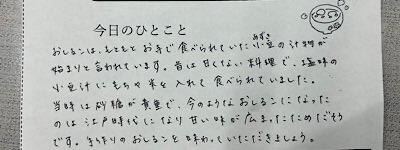 今日のひとこと
おしるこは、もともとお寺で食べられていた小豆の汁物が
あずき
始まりと言われています。昔は甘くない料理で、塩味の
小豆汁にもちや米を入れて食べられていました。
当時は砂糖が貴重で、今のようなおしるこになった
のは江戸時代になり甘い味が広まったためだそう
です。手作りのおしるこを味わっていただきましょう。